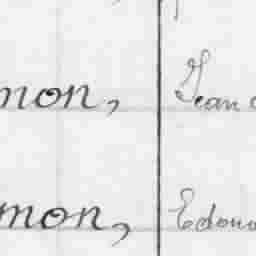 mon, Jean
mon, Edou